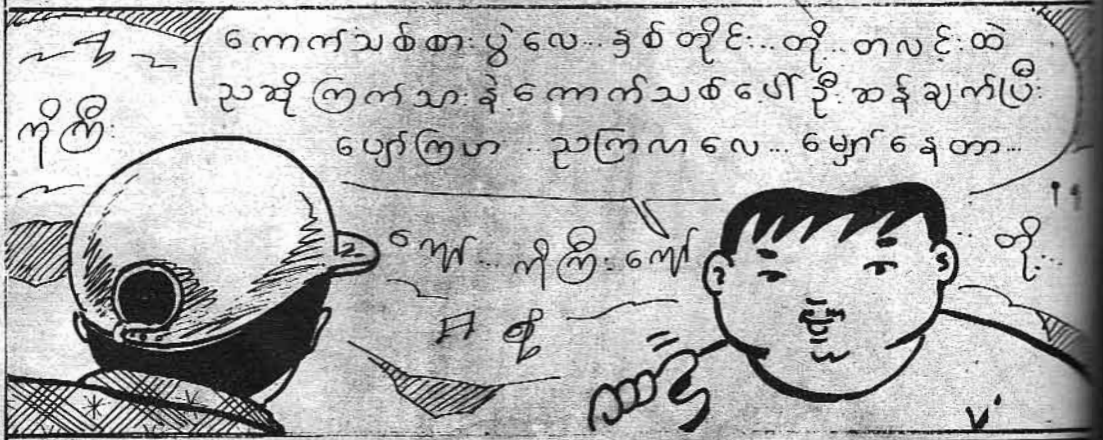 ကောက်သစ်စားပွဲလေ... နှစ်တိုင်း... တို့... တလင်းထဲ
ညဆို ကြက်သားနဲ့ ကောက်သစ်ပေါ် ဦးဆန်ချက်ပြီး
ပျော်ကြဟ .. ညကြလာလေ... မျှော်နေတာ...
ကိုကြီး
ကျော် ... ကိုကြီးကျော်
... တို့...